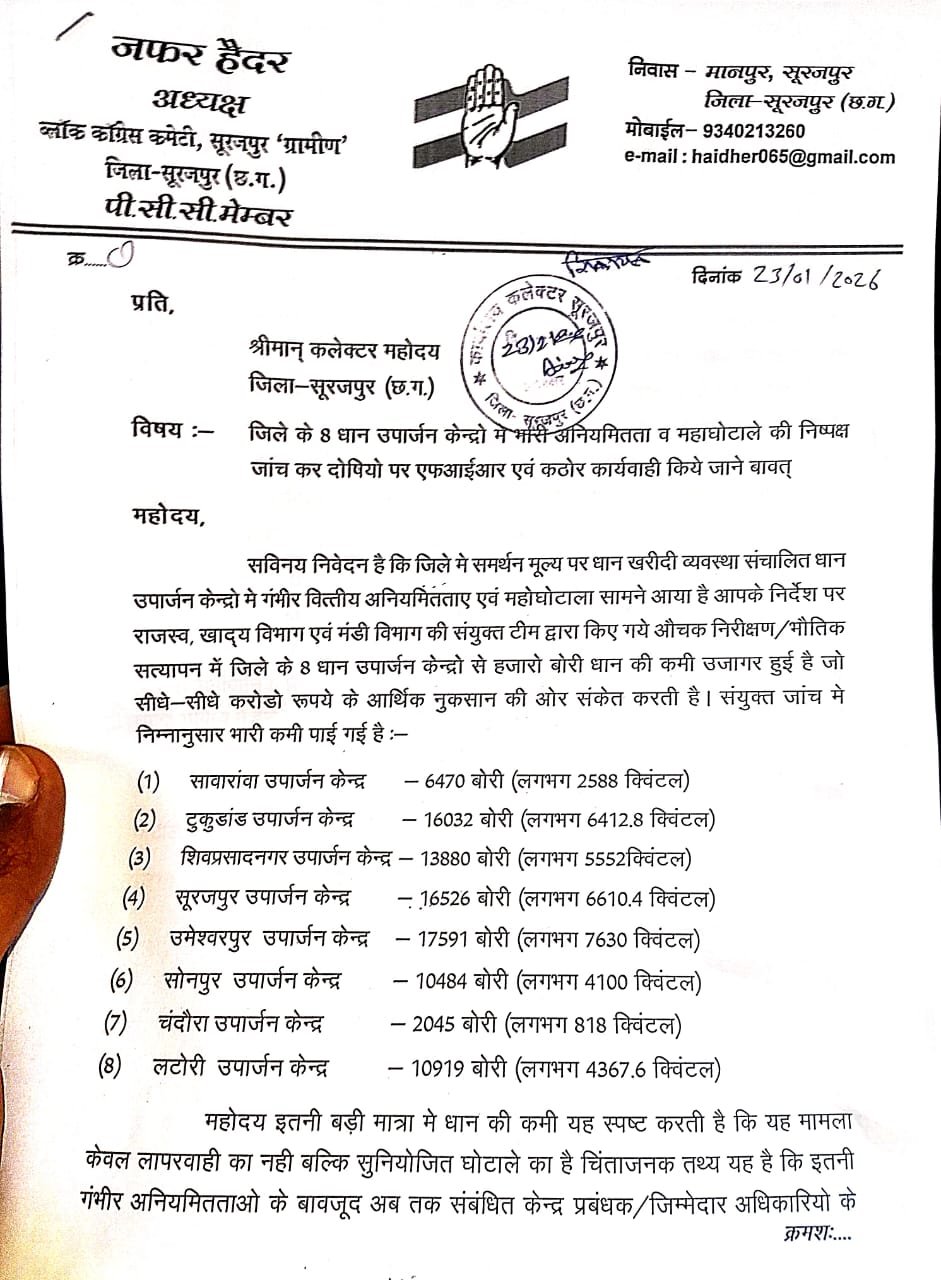 जफर हैदर
अध्यक्ष
ब्लॉक कांग्रेस कमेटी, सूरजपुर 'ग्रामीण'
जिला-सूरजपुर (छ.ग.)
पी.सी.सी.मेम्बर
निवास – मानपुर, सूरजपुर
जिला–सूरजपुर (छ.ग.)
मोबाईल– 9340213260
e-mail : haidher065@gmail.com
क्र......
दिनांक 23/01/2026
कार्यालय कलेक्टर सूरजपुर
जिला- सूरजपुर (छ.ग.)
प्रति,
श्रीमान् कलेक्टर महोदय
जिला–सूरजपुर (छ.ग.)
विषय :– जिले के 8 धान उपार्जन केन्द्रो मे भारी अनियमितता व महाघोटाले की निष्पक्ष
जांच कर दोषियो पर एफआईआर एवं कठोर कार्यवाही किये जाने बावत्
महोदय,
सविनय निवेदन है कि जिले मे समर्थन मूल्य पर धान खरीदी व्यवस्था संचालित धान
उपार्जन केन्द्रो मे गंभीर वित्तीय अनियमितताए एवं महोघोटाला सामने आया है आपके निर्देश पर
राजस्व, खाद्य विभाग एवं मंडी विभाग की संयुक्त टीम द्वारा किए गये औचक निरीक्षण/भौतिक
सत्यापन में जिले के 8 धान उपार्जन केन्द्रो से हजारो बोरी धान की कमी उजागर हुई है जो
सीधे–सीधे करोडो रूपये के आर्थिक नुकसान की ओर संकेत करती है। संयुक्त जांच मे
निम्नानुसार भारी कमी पाई गई है :–
(1) सावारांवा उपार्जन केन्द्र – 6470 बोरी (लगभग 2588 क्विंटल)
(2) टुकुडांड उपार्जन केन्द्र – 16032 बोरी (लगभग 6412.8 क्विंटल)
(3) शिवप्रसादनगर उपार्जन केन्द्र – 13880 बोरी (लगभग 5552क्विंटल)
(4) सूरजपुर उपार्जन केन्द्र – 16526 बोरी (लगभग 6610.4 क्विंटल)
(5) उमेश्वरपुर उपार्जन केन्द्र – 17591 बोरी (लगभग 7630 क्विंटल)
(6) सोनपुर उपार्जन केन्द्र – 10484 बोरी (लगभग 4100 क्विंटल)
(7) चंदौरा उपार्जन केन्द्र – 2045 बोरी (लगभग 818 क्विंटल)
(8) लटोरी उपार्जन केन्द्र – 10919 बोरी (लगभग 4367.6 क्विंटल)
महोदय इतनी बड़ी मात्रा मे धान की कमी यह स्पष्ट करती है कि यह मामला
केवल लापरवाही का नही बल्कि सुनियोजित घोटाले का है चिंताजनक तथ्य यह है कि इतनी
गंभीर अनियमितताओ के बावजूद अब तक संबंधित केन्द्र प्रबंधक/जिम्मेदार अधिकारियो के
क्रमशः....